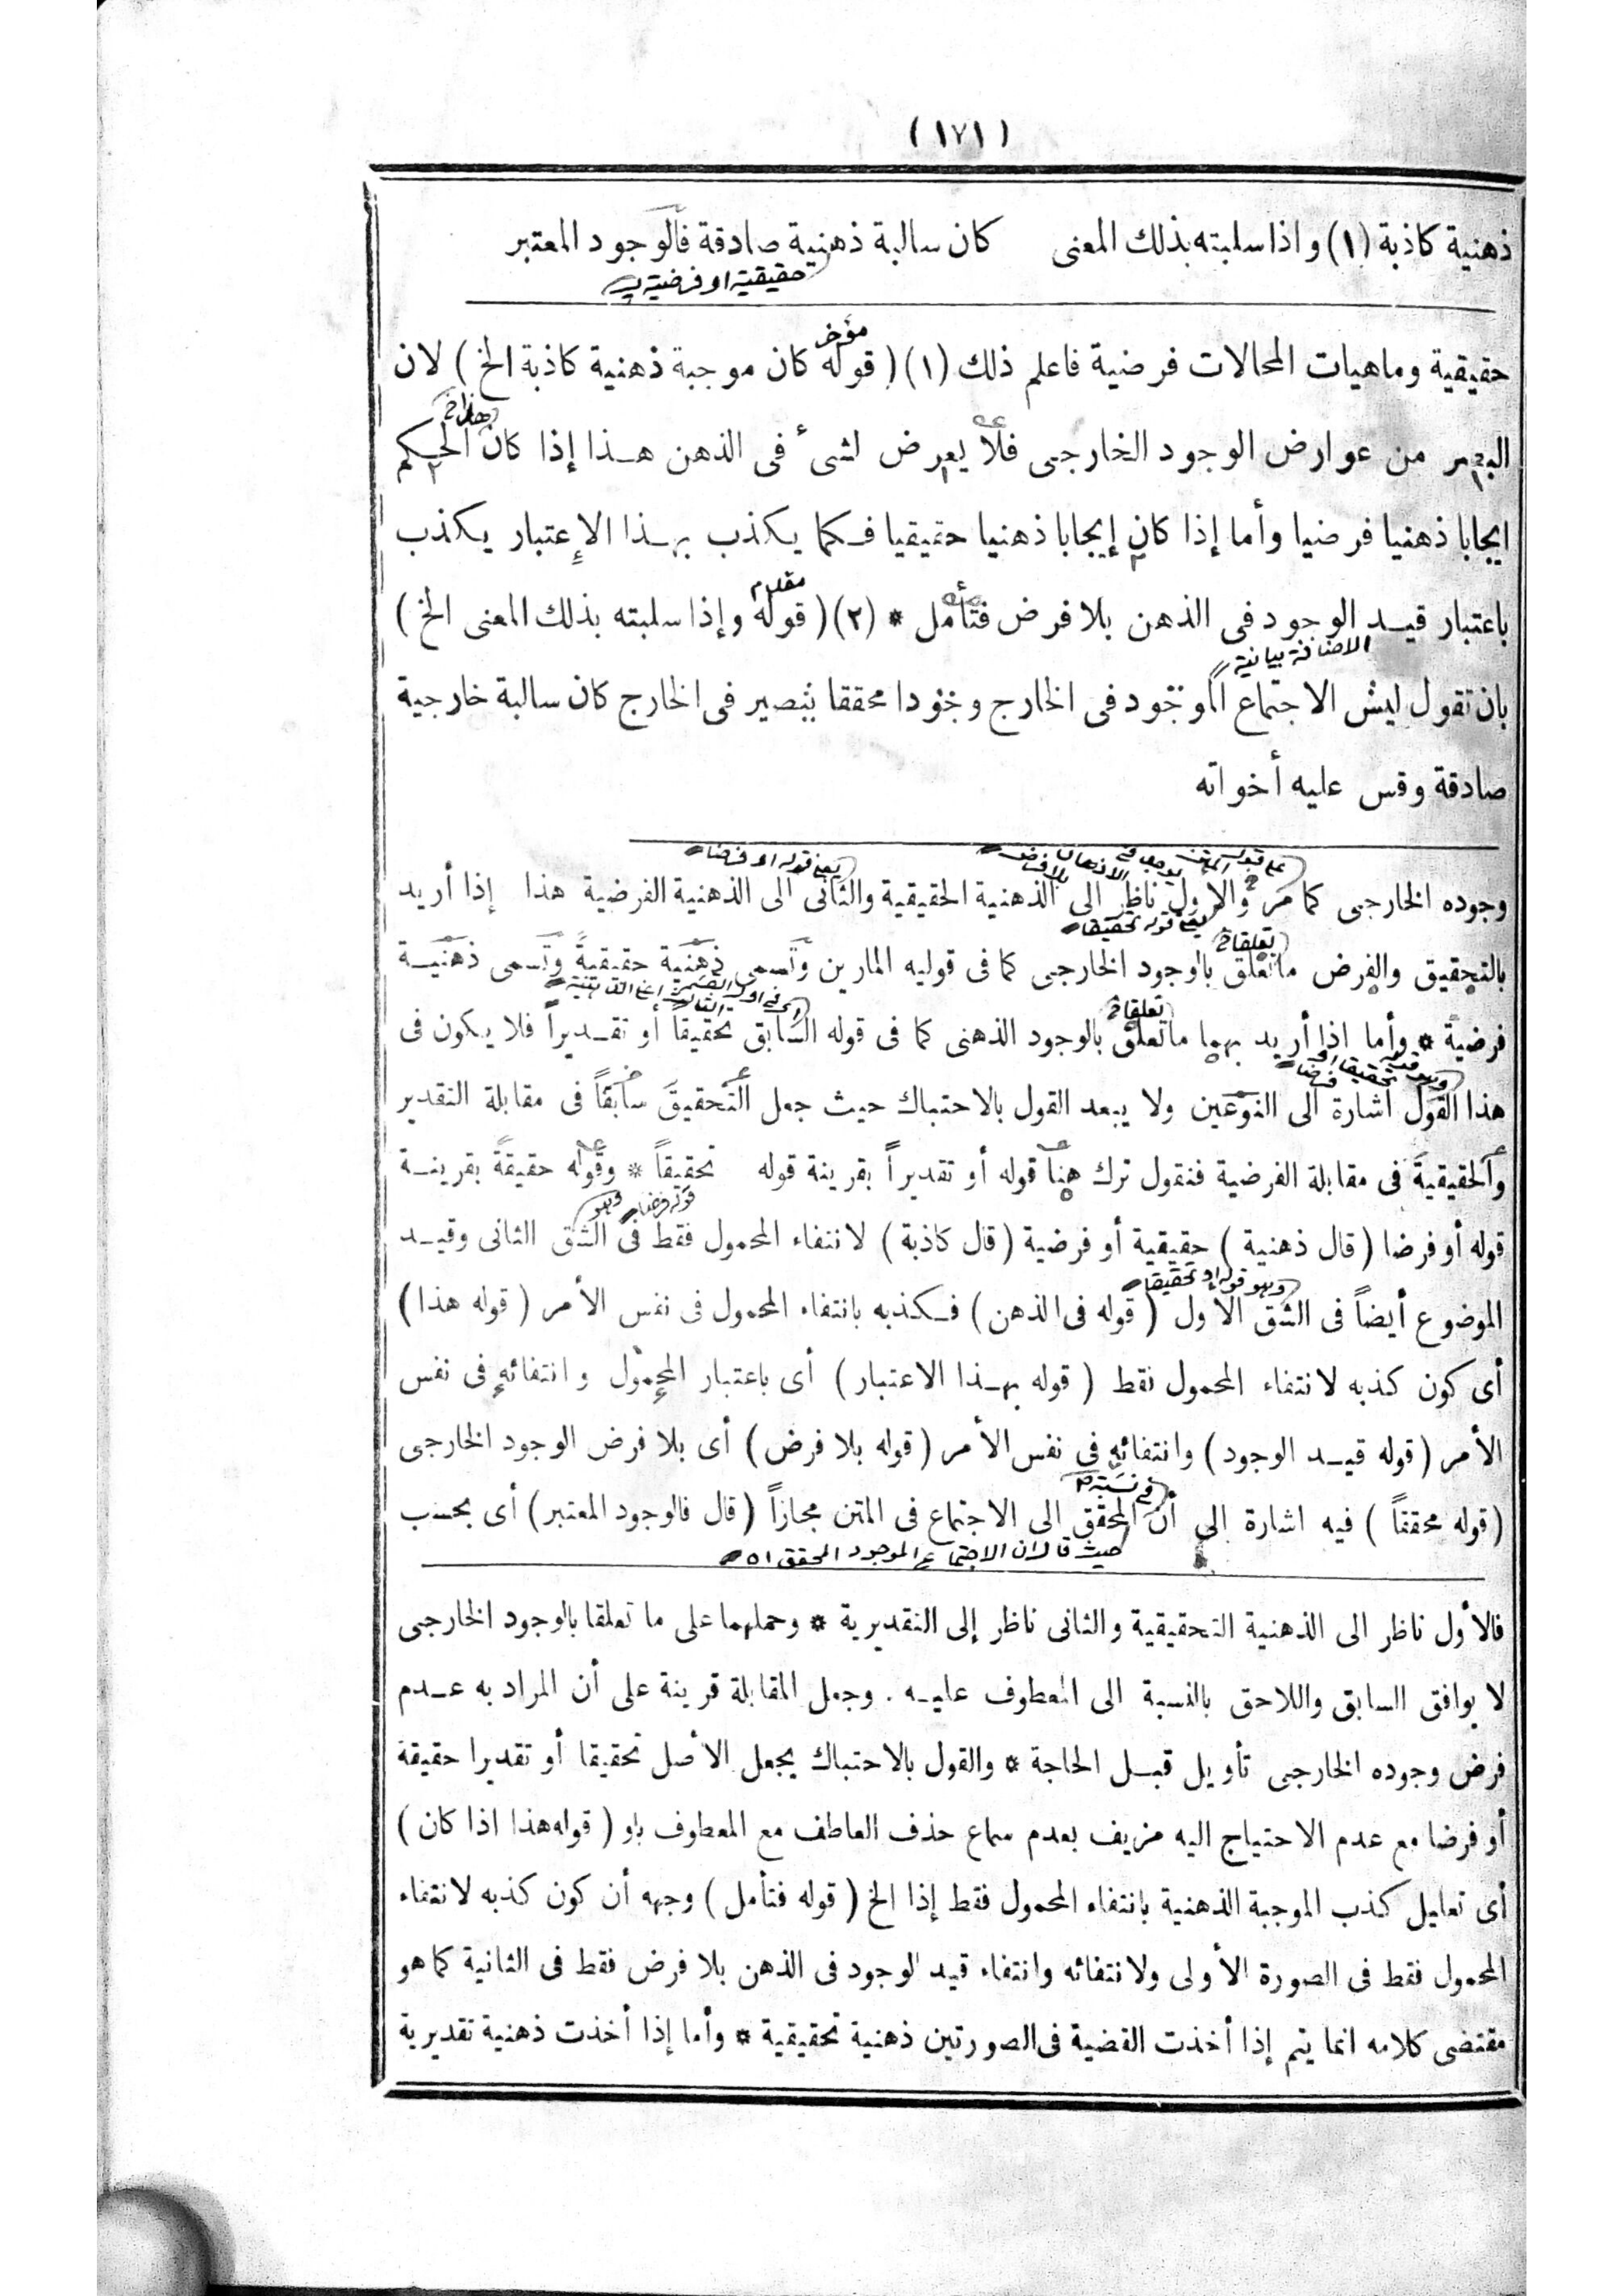 ( ١٧١ )
ذهنية كاذبة (١) واذا سلبته بذلك المعنى كان سالبة ذهنية صادقة فالوجود المعتبر
حقيقية او فرضية
حقيقية وماهيات المحالات فرضية فاعلم ذلك (١) ( قوله كان موجبة ذهنية كاذبة الخ ) لان
مؤخر
البصر من عوارض الوجود الخارجى فلا يعرض لشىء فى الذهن هــذا إذا كان الحكم
ايجابا ذهنيا فرضيا وأما إذا كان إيجابا ذهنيا حقيقيا فــكما يكذب بهــذا الإعتبار يكذب
باعتبار قيــد الوجود فى الذهن بلا فرض فتأمل * (٢) ( قوله وإذا سلبته بذلك المعنى الخ )
مقدم
الاضافة بيانية
بان تقول ليس الاجتماع الموجود فى الخارج وجودا محققا ببصير فى الخارج كان سالبة خارجية
صادقة وقس عليه أخواته
يعنى قوله او فرضا
وجوده الخارجى كما مر والاول ناظر الى الذهنية الحقيقية والثانى الى الذهنية الفرضية هذا إذا أريد
يعنى قوله تحقيقا
تعلقا
بالتحقيق والفرض ما تعلق بالوجود الخارجى كما فى قوليه المارين وتسمى ذهنية حقيقية وتسمى ذهنيــة
تعلقا
فرضية * وأما اذا أريد بهما ما تعلق بالوجود الذهنى كما فى قوله السابق تحقيقاً أو تقــديراً فلا يكون فى
هذا القول اشارة الى النوعين ولا يبعد القول بالاحتباك حيث جعل التحقيق سابقاً فى مقابلة التقدير
والحقيقية فى مقابلة الفرضية فنقول ترك هنا قوله أو تقديراً بقرينة قوله تحقيقاً * وقوله حقيقةً بقرينــة
وهو قوله فرضا
قوله أو فرضا ( قال ذهنية ) حقيقية أو فرضية ( قال كاذبة ) لانتفاء المحمول فقط فى الشق الثانى وقيــد
وهو قوله او تحقيقا
الموضوع أيضاً فى الشق الاول ( قوله فى الذهن ) فــكذبه بانتفاء المحمول فى نفس الأمر ( قوله هذا )
أى كون كذبه لانتفاء المحمول فقط ( قوله بهــذا الاعتبار ) أى باعتبار المحمول وانتفائه فى نفس
الأمر ( قوله قيــد الوجود ) وانتفائه فى نفس الأمر ( قوله بلا فرض ) أى بلا فرض الوجود الخارجى
فى نسبة
( قوله محققاً ) فيه اشارة الى أن المحقق الى الاجتماع فى المتن مجازاً ( قال فالوجود المعتبر ) أى بحسب
حيث قال ان الاجتماع الموجود المحقق اه
فالأول ناظر الى الذهنية التحقيقية والثانى ناظر إلى التقديرية * وحملهما على ما تعلقا بالوجود الخارجى
لا يوافق السابق واللاحق بالنسبة الى المعطوف عليــه . وجعل المقابلة قرينة على أن المراد به عــدم
فرض وجوده الخارجى تأويل قبــل الحاجة * والقول بالاحتباك بجعل الأصل تحقيقا أو تقديرا حقيقة
أو فرضا مع عدم الاحتياج اليه مزيف بعدم سماع حذف العاطف مع المعطوف باو ( قوله هذا اذا كان )
أى تعليل كذب الموجبة الذهنية بانتفاء المحمول فقط إذا الخ ( قوله فتأمل ) وجهه أن كون كذبه لانتفاء
المحمول فقط فى الصورة الأولى ولانتفائه وانتفاء قيد الوجود فى الذهن بلا فرض فقط فى الثانية كما هو
مقتضى كلامه انما يتم إذا أخذت القضية فى الصورتين ذهنية تحقيقية * وأما إذا أخذت ذهنية تقديرية